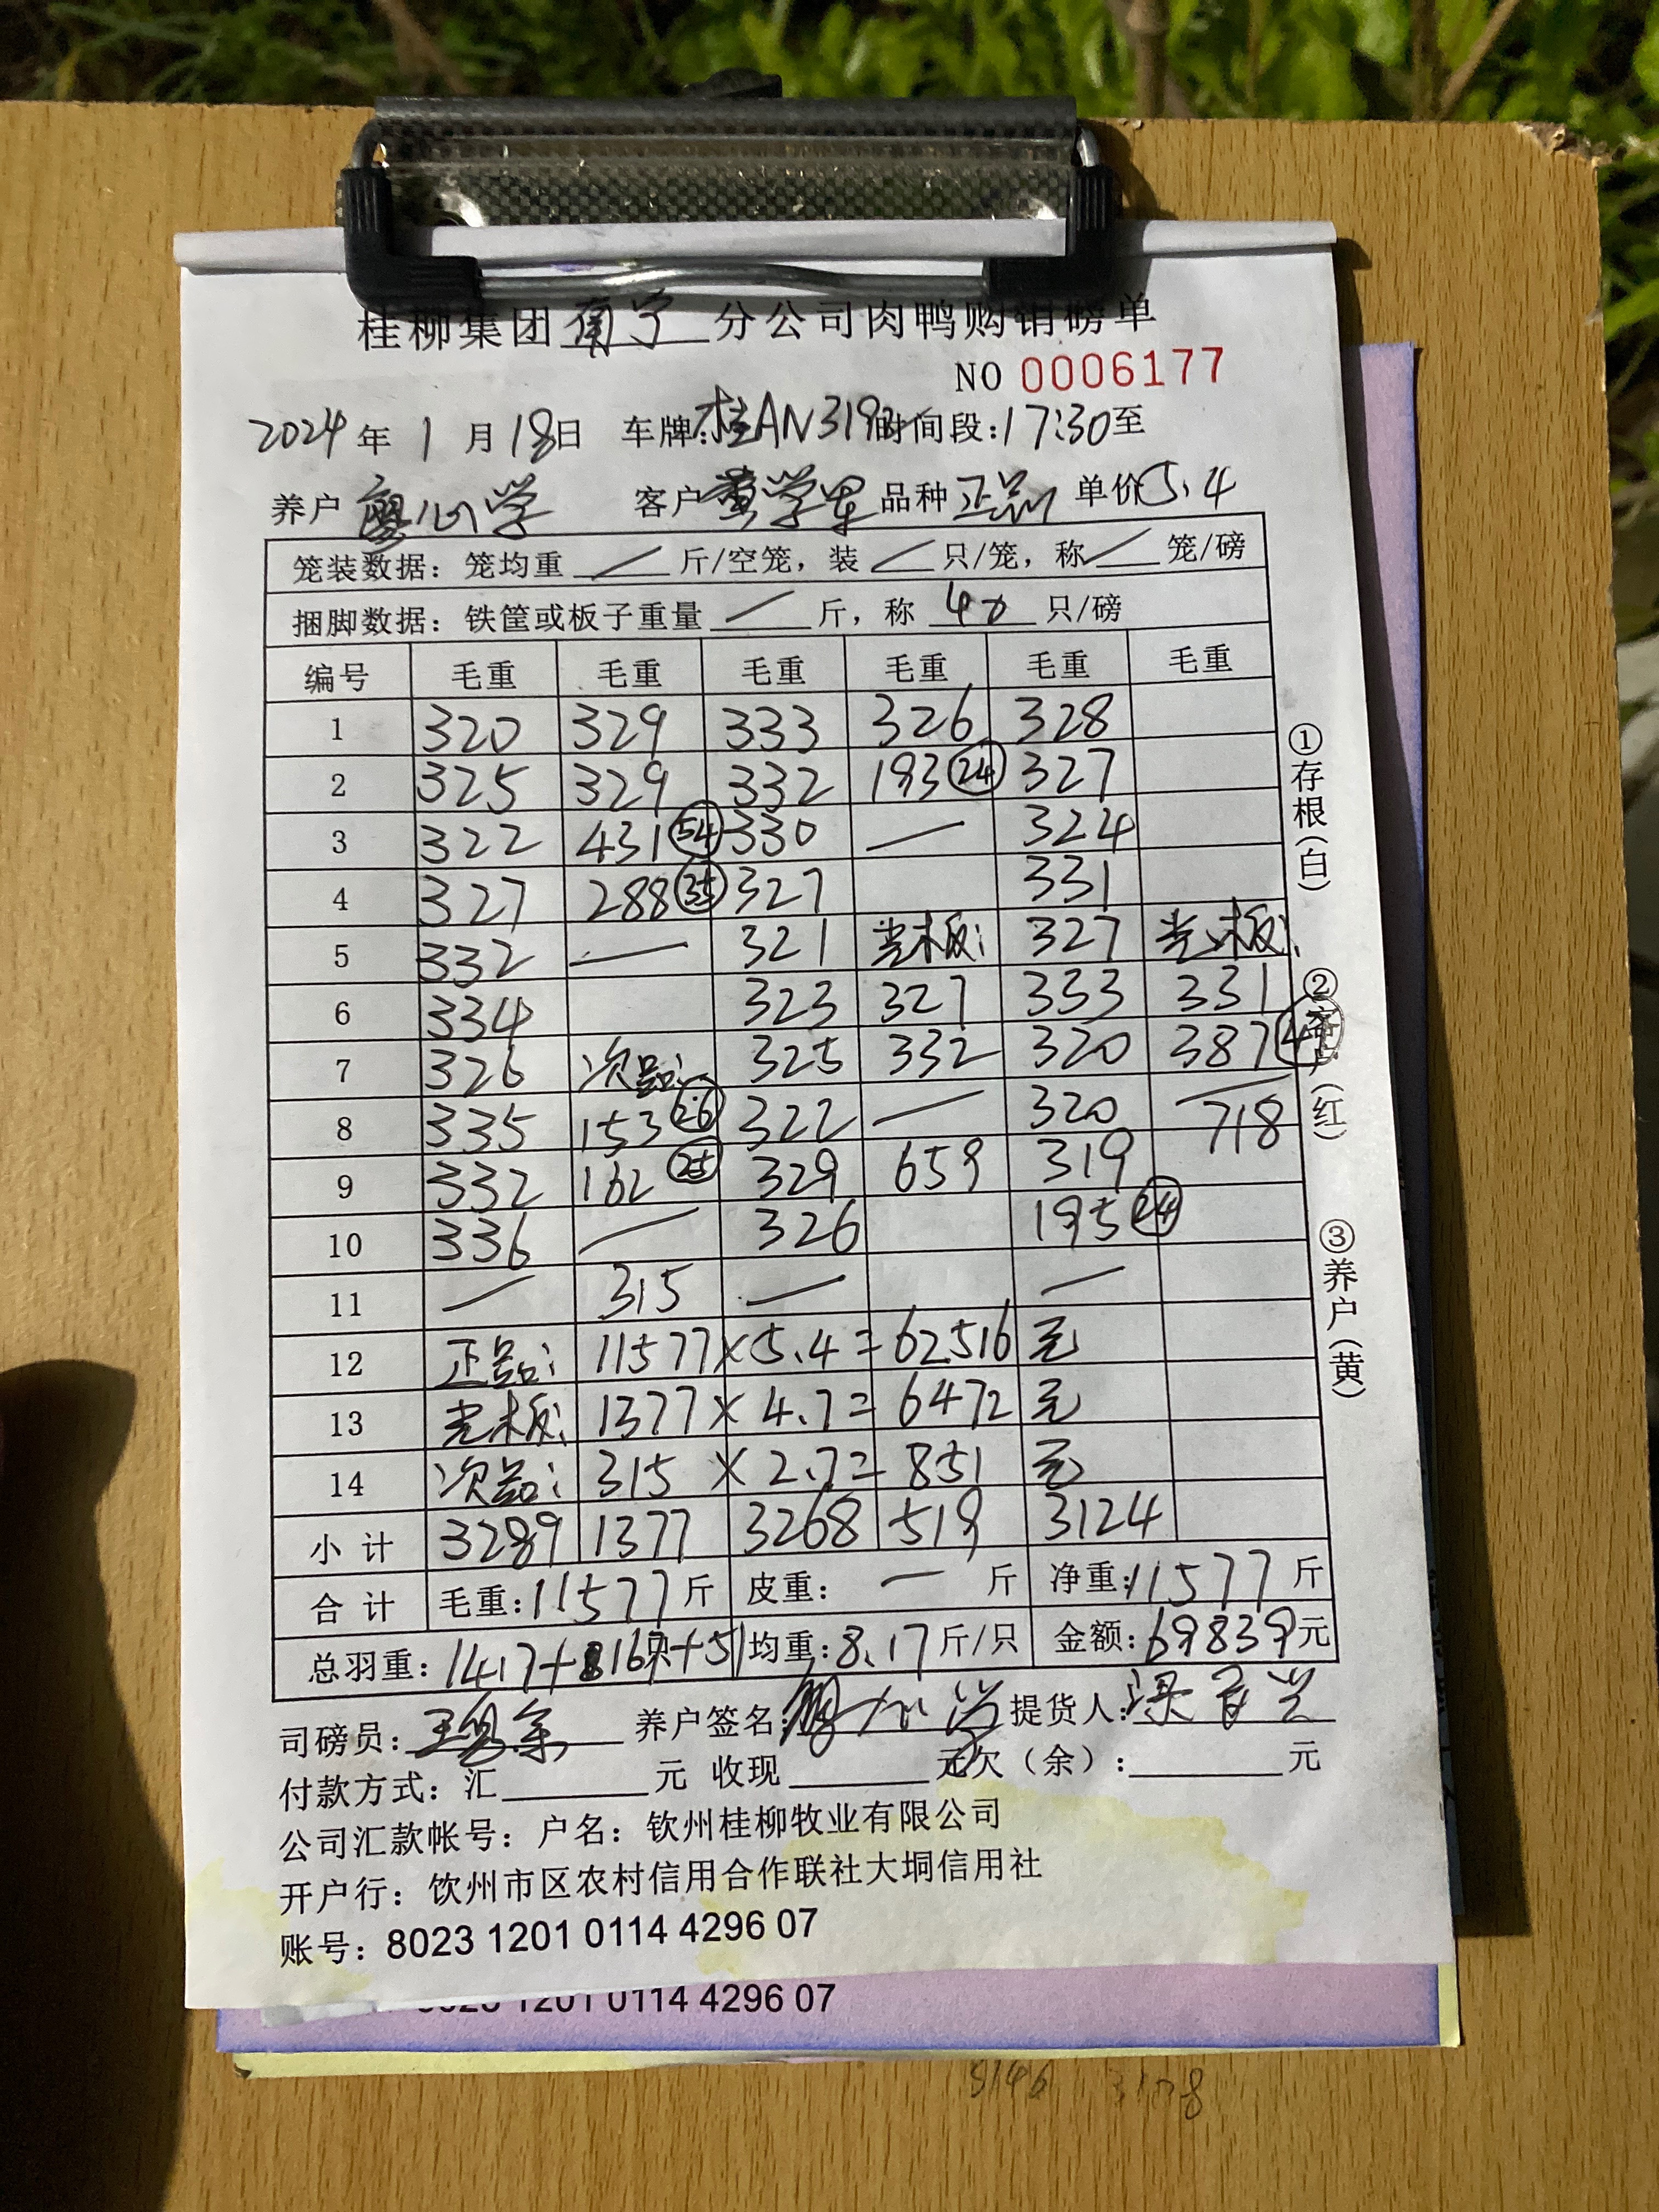 桂柳集团南宁分公司肉鸭购销磅单
NO 0006177
2024年1月18日 车牌:桂AN319 时间段:17:30至
养户 客户黄学军 品种正品 单价5.4
笼装数据: 笼均重 / 斤/空笼, 装 / 只/笼, 称 / 笼/磅
捆脚数据: 铁筐或板子重量 / 斤, 称 40 只/磅
编号 毛重 毛重 毛重 毛重 毛重 毛重
1 320 329 333 326 328
2 325 329 332 193 24 327
3 322 431 54 330 — 324
4 327 288 35 327 331
5 332 — 321 光板: 327 光板:
6 334 323 327 333 331
7 326 次品: 325 332 320 387
8 335 153 26 322 — 320 — 718
9 332 162 25 329 659 319
10 336 — 326 195 24
11 — 315 — —
12 正品: 11577×5.4=62516元
13 光板: 1377×4.7=6472元
14 次品: 315×2.7=851元
小计 3289 1377 3268 519 3124
合计 毛重:11577斤 皮重: — 斤 净重:11577斤
总羽重: 1417+167只+51 均重:8.17斤/只 金额:69839元
司磅员: 养户签名: 提货人:
付款方式: 汇 元 收现 元 欠(余): 元
公司汇款帐号: 户名: 钦州桂柳牧业有限公司
开户行: 钦州市区农村信用合作联社大垌信用社
账号: 8023 1201 0114 4296 07
①存根(白)
②客户(红)
③养户(黄)
8023 1201 0114 4296 07